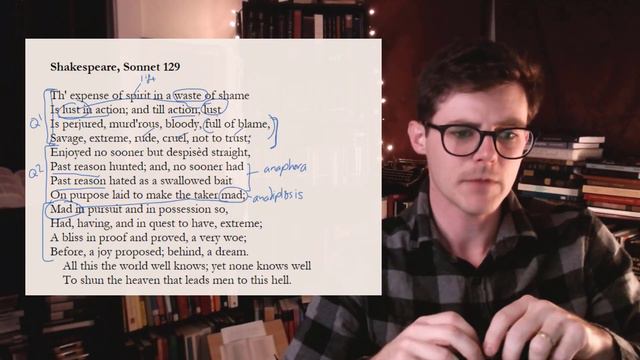 Shakespeare, Sonnet 129
Th' expense of spirit in a waste of shame
Is lust in action; and till action, lust
Q1
Is perjured, murd'rous, bloody, full of blame,
Savage, extreme, rude, cruel, not to trust;
Enjoyed no sooner but despisèd straight,
Q2
Past reason hunted; and, no sooner had
anaphora
Past reason hated as a swallowed bait
On purpose laid to make the taker mad;
anadiplosis
Mad in pursuit and in possession so,
Had, having, and in quest to have, extreme;
A bliss in proof and proved, a very woe;
Before, a joy proposed; behind, a dream.
All this the world well knows; yet none knows well
To shun the heaven that leads men to this hell.